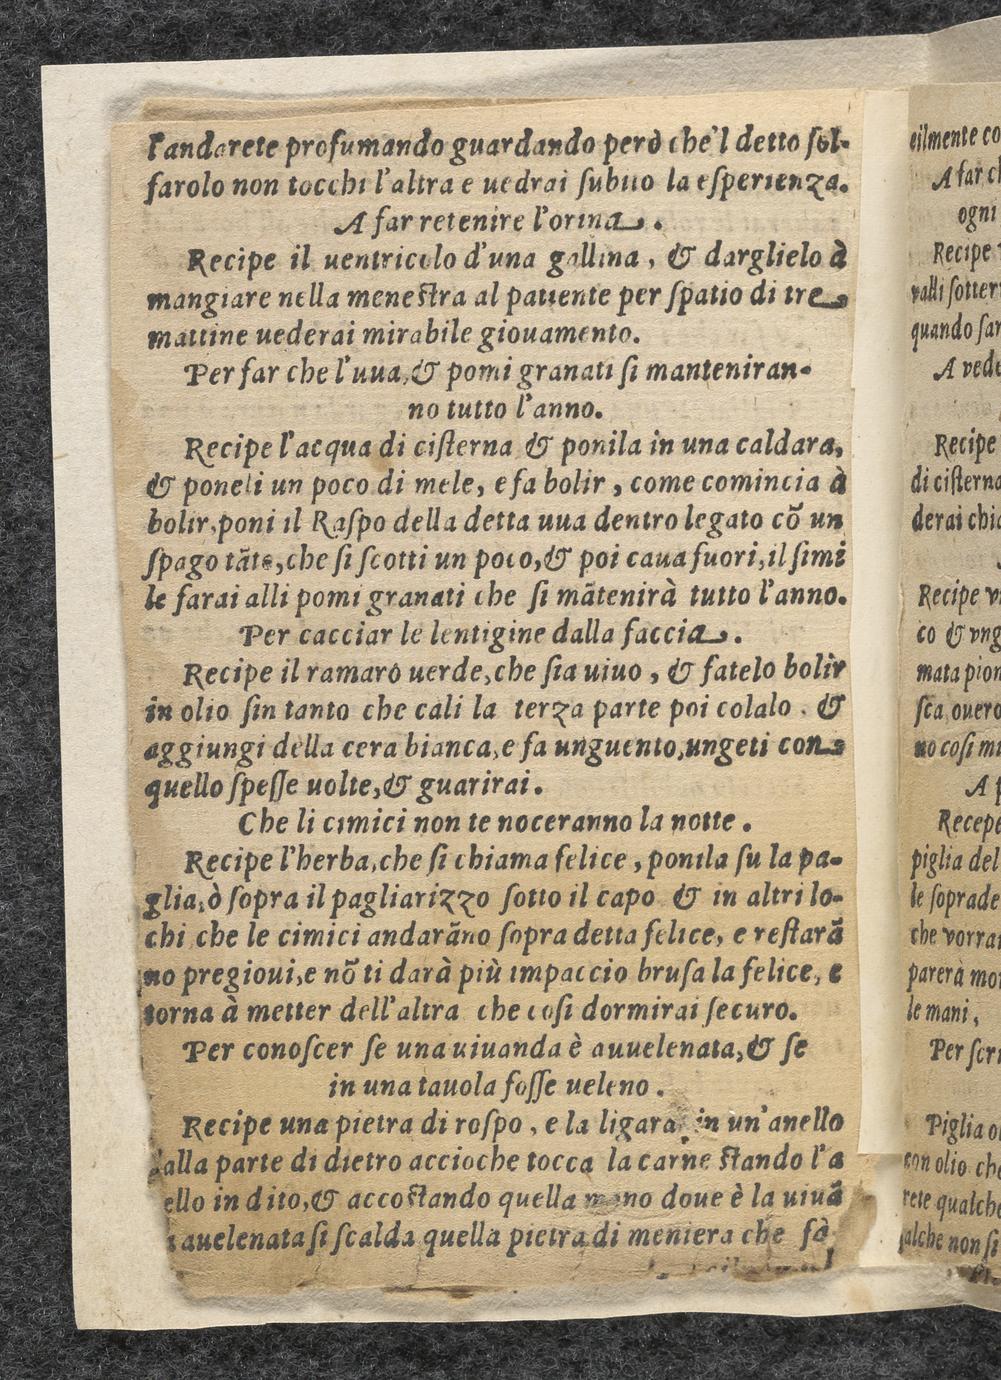 l'andarete profumando guardando però che'l detto sol-
farolo non tocchi l'altra e uedrai subito la esperienza.
A far retenire l'orina.
Recipe il uentricolo d'una gallina, & darglielo à
mangiare nella menestra al patiente per spatio di tre
mattine uederai mirabile giouamento.
Per far che l'uua, & pomi granati si manteniran-
no tutto l'anno.
Recipe l'acqua di cisterna & ponila in una caldara,
& poneli un poco di mele, e fa bolir, come comincia à
bolir, poni il Raspo della detta uua dentro legato cõ un
spago tãto, che si scotti un poco, & poi caua fuori, il simi
le farai alli pomi granati che si mãtenirà tutto l'anno.
Per cacciar le lentigine dalla faccia.
Recipe il ramaro uerde, che sia uiuo, & fatelo bolir
in olio sin tanto che cali la terza parte poi colalo. &
aggiungi della cera bianca, e fa unguento, ungeti con
quello spesse uolte, & guarirai.
Che li cimici non te noceranno la notte.
Recipe l'herba, che si chiama felice, ponila su la pa-
glia, ò sopra il pagliarizzo sotto il capo & in altri lo-
chi che le cimici andarãno sopra detta felice, e restarã
no pregioui, e nõ ti darà più impaccio brusa la felice, e
torna à metter dell'altra che cosi dormirai securo.
Per conoscer se una uiuanda è auuelenata, & se
in una tauola fosse ueleno.
Recipe una pietra di rospo, e la ligara, in un'anello
dalla parte di dietro accioche tocca la carne stando l'a
ello in dito, & accostando quella mano doue è la uiuã
auelenata si scalda quella pietra di meniera che fà
eilmente co
A far ch
ogni
Recipe
valli sotter
quando sar
A vede
Recipe
di cisterna
derai chia
Recipe v
co & vng
mata pion
sca, ouero
no cosi mi
A p
Recepe
piglia del
le soprade
che vorrai
parerà mor
le mani,
Per scri
Piglia o
con olio che
rete qualche
alche non si